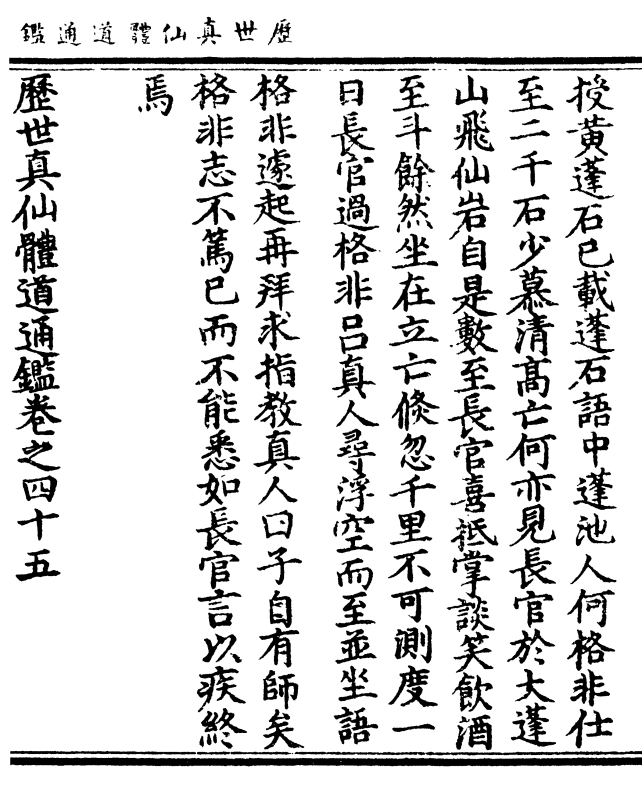 歷世真仙體道通鑑
授黃蓬石已載蓬石語中蓬池人何格非仕
至二千石少慕清高亡何亦見長官於大蓬
山飛仙岩自是數至長官喜抵掌談笑飲酒
至斗餘然坐在立亡倏忽千里不可測度一
日長官過格非呂真人尋浮空而至並坐語
格非遽起再拜求指教真人曰子自有師矣
格非志不篤已而不能悉如長官言以疾終
焉
歷世真仙體道通鑑卷之四十五